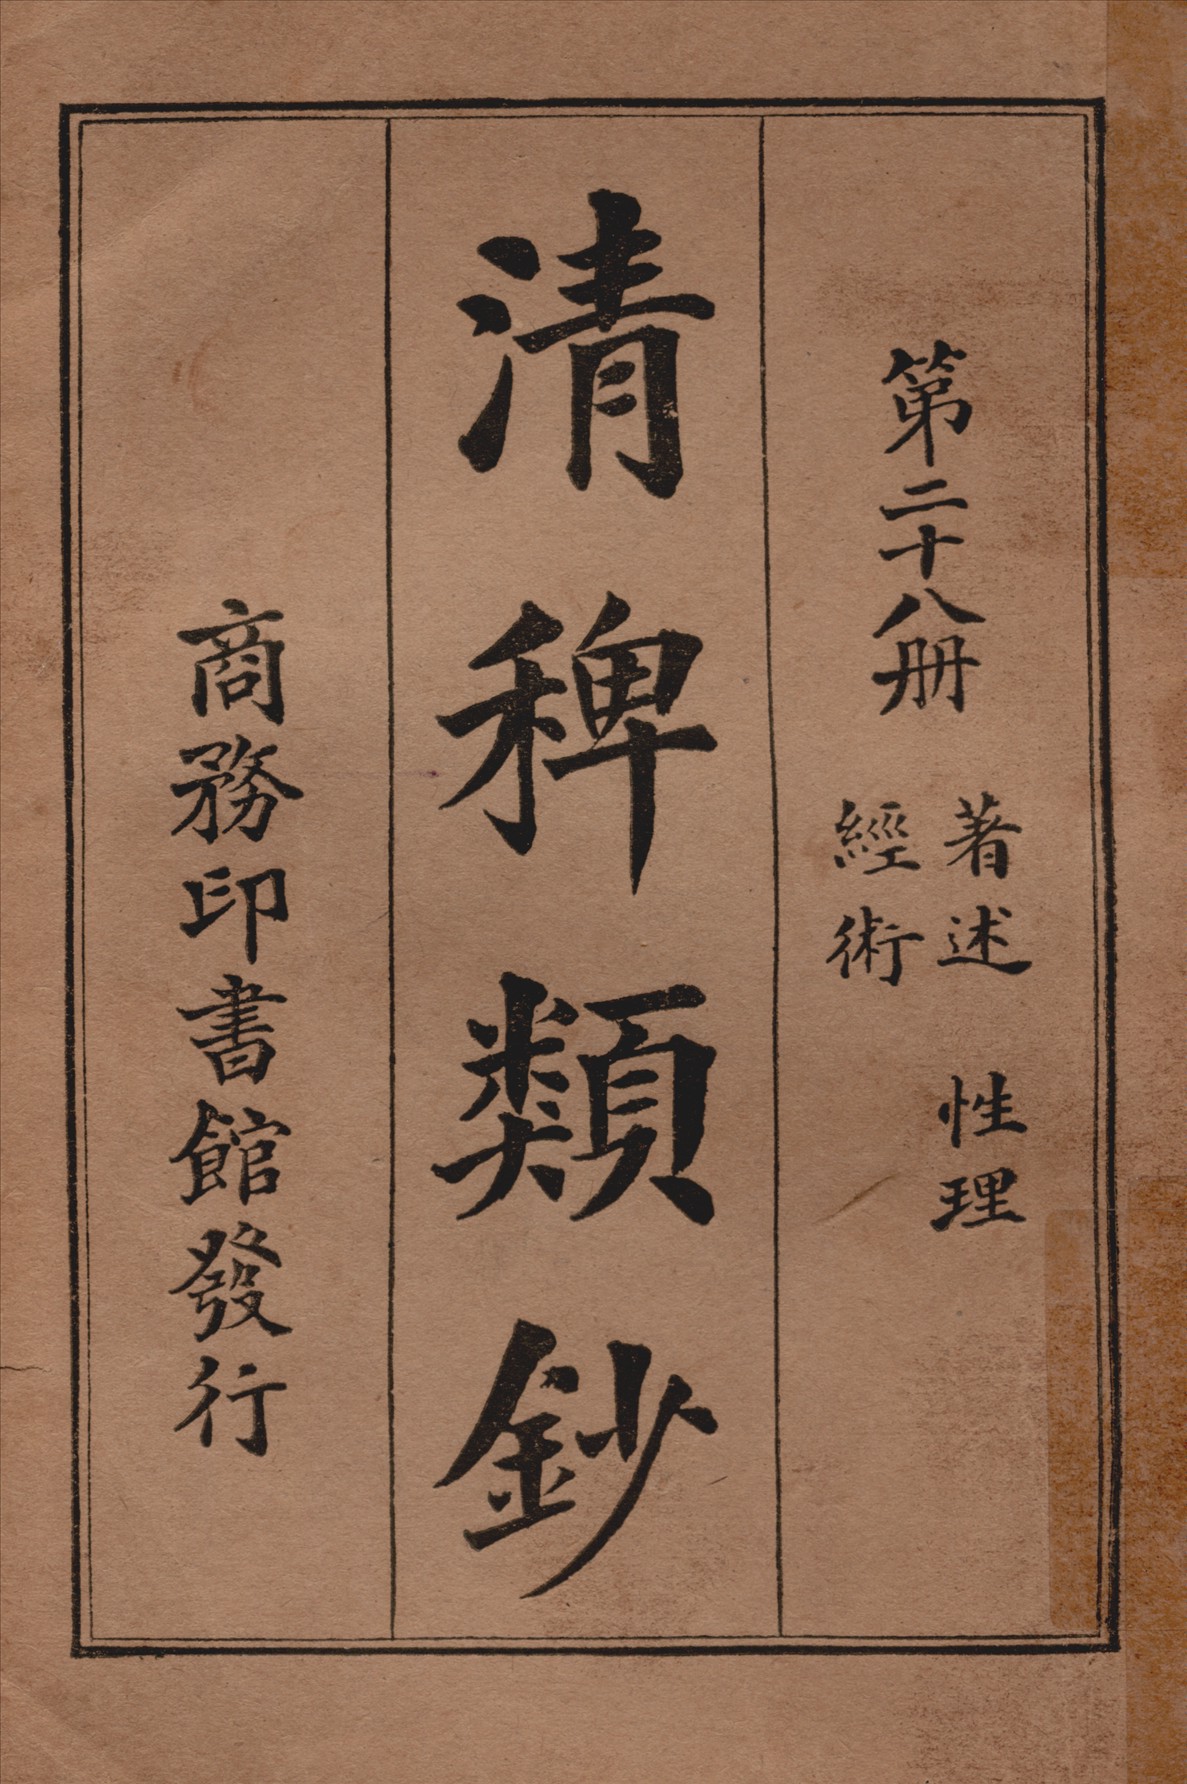 第二十八册
著述 性理
經術
清稗類鈔
商務印書館發行